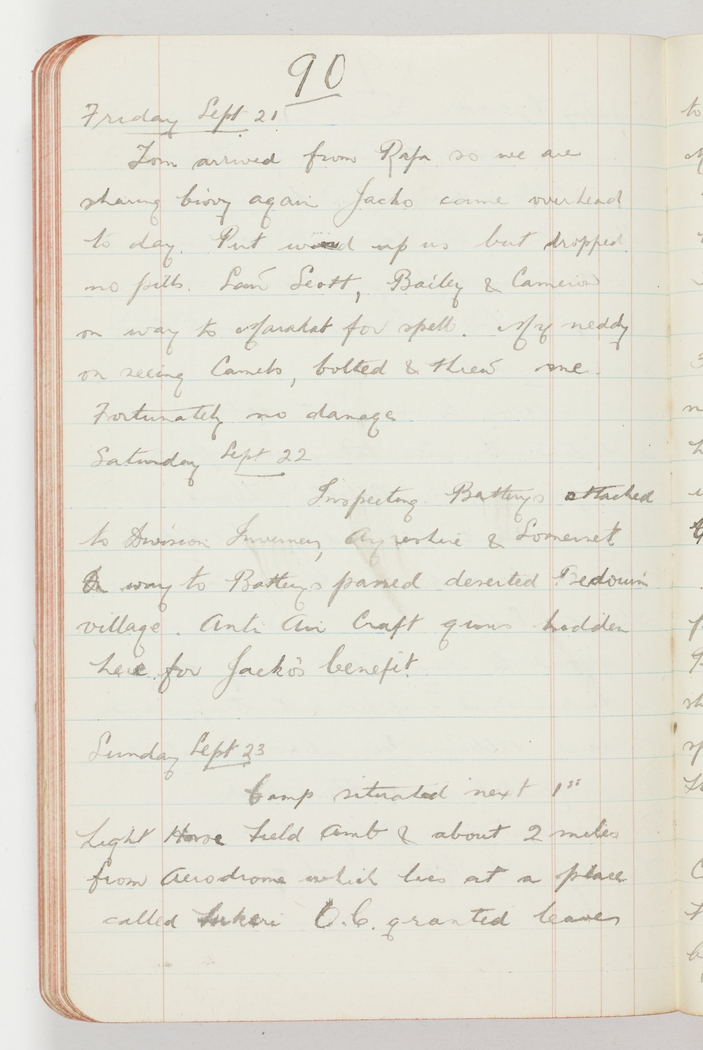 90
Friday Sept 21
Tom arrived from Rafa so we are
sharing bivvy again Jacko came overhead
to day. Put wind up us but dropped
no pills. Saw Scott, Bailey & Cameron
on way to Marakat for spell. My neddy
on seeing Camels, bolted & threw me.
Fortunately no damage
Saturday Sept 22
Inspecting Batterys attached
to Division Inverness, Ayreshire & Somerset.
On way to Batterys passed deserted Bedouin
village. Anti Air Craft guns hidden
here for Jacko's benefit.
Sunday Sept 23
Camp situated next 1st
Light Horse Field Amb & about 2 miles
from Aerodrome which lies at a place
called O.C. granted leaves